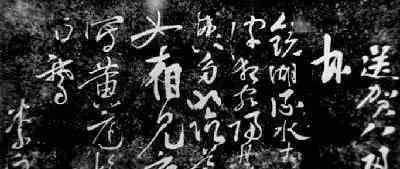 送賀八歸
越
鏡湖流水
波狂客歸
興多山陰道
如相見應
寫黃庭換
白鵝